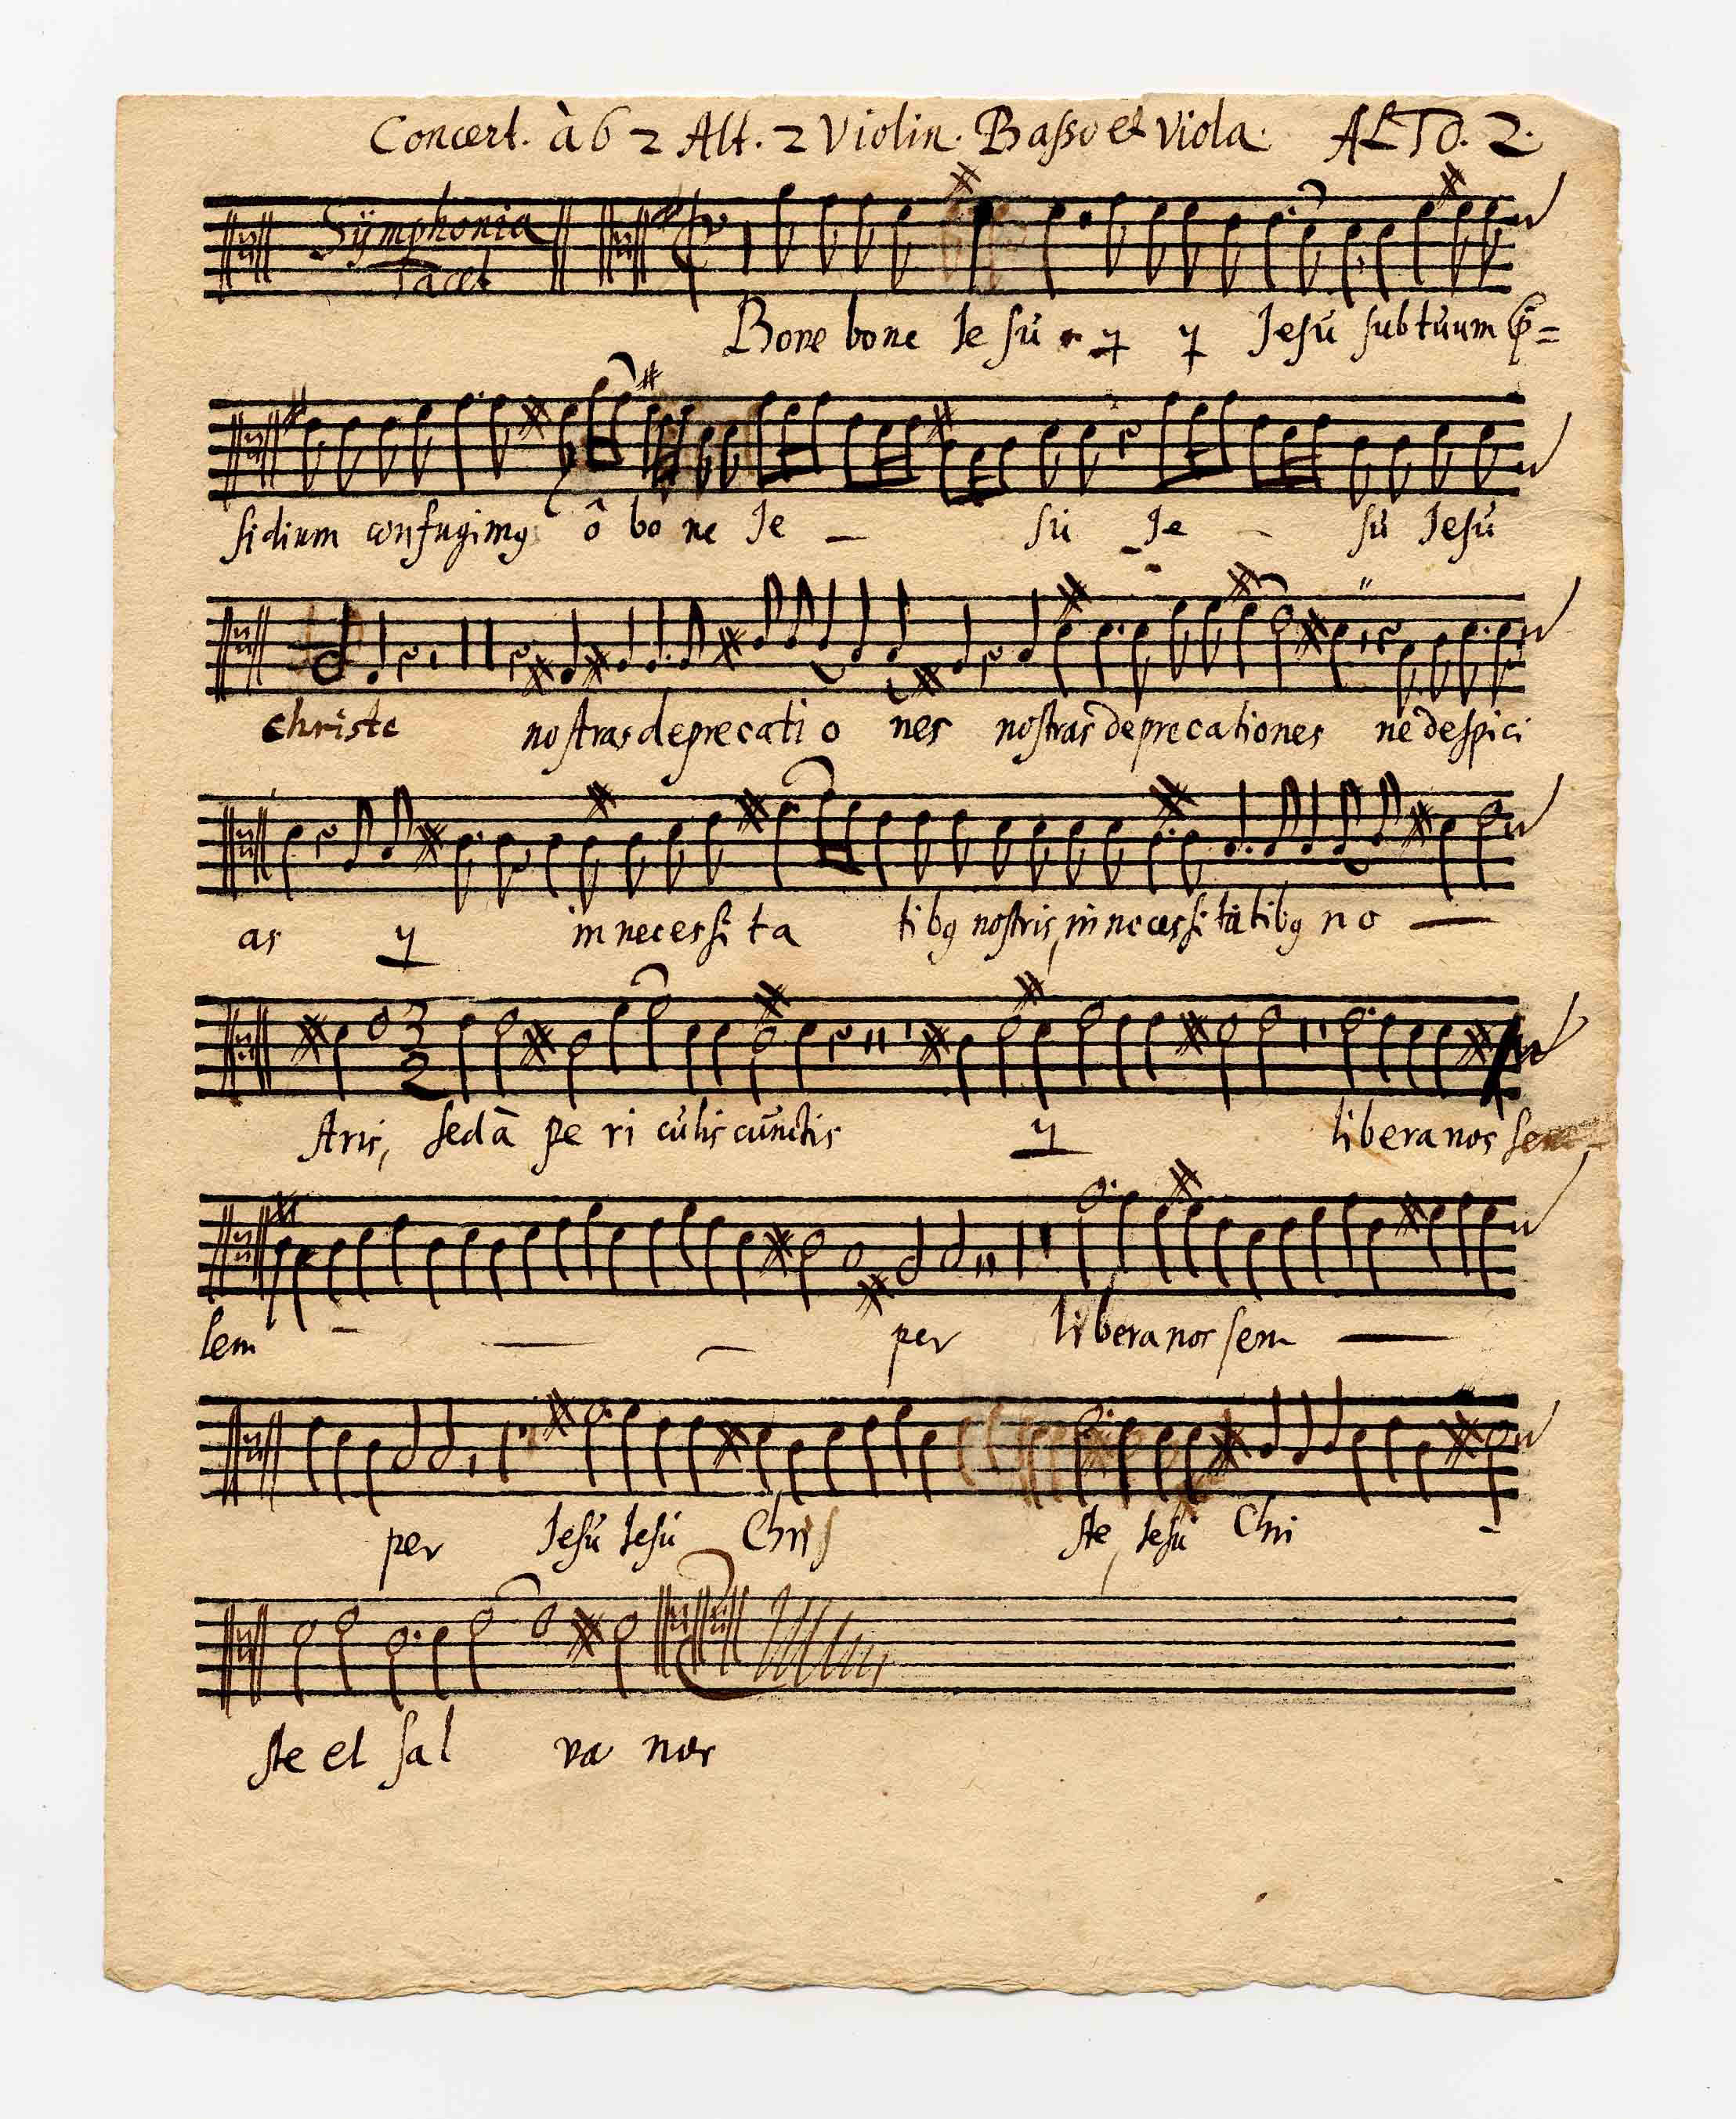 Concert. à 6 2 Alt. 2 Violin. Basso et Viola. ALTO. 2.
Sÿmphonia
Tacet
Bone bone Je sŭ ÿ ÿ Jesŭ sub tŭum p̄=
sidium confugimꝰ ô bo ne Je — sŭ Je - sŭ Jesŭ
christe nostras deprecati o nes nostras deprecationes ne despici
as ÿ in necessi ta tibꝰ nostris, in necessi tatibꝰ no —
stris, sed à pe ri cŭlis cŭnctis ÿ libera nos sem-
sem - — - per libera nos sem —
per Jesŭ Jesŭ Chri s ste, Jesŭ Chri -
ste et sal va nos